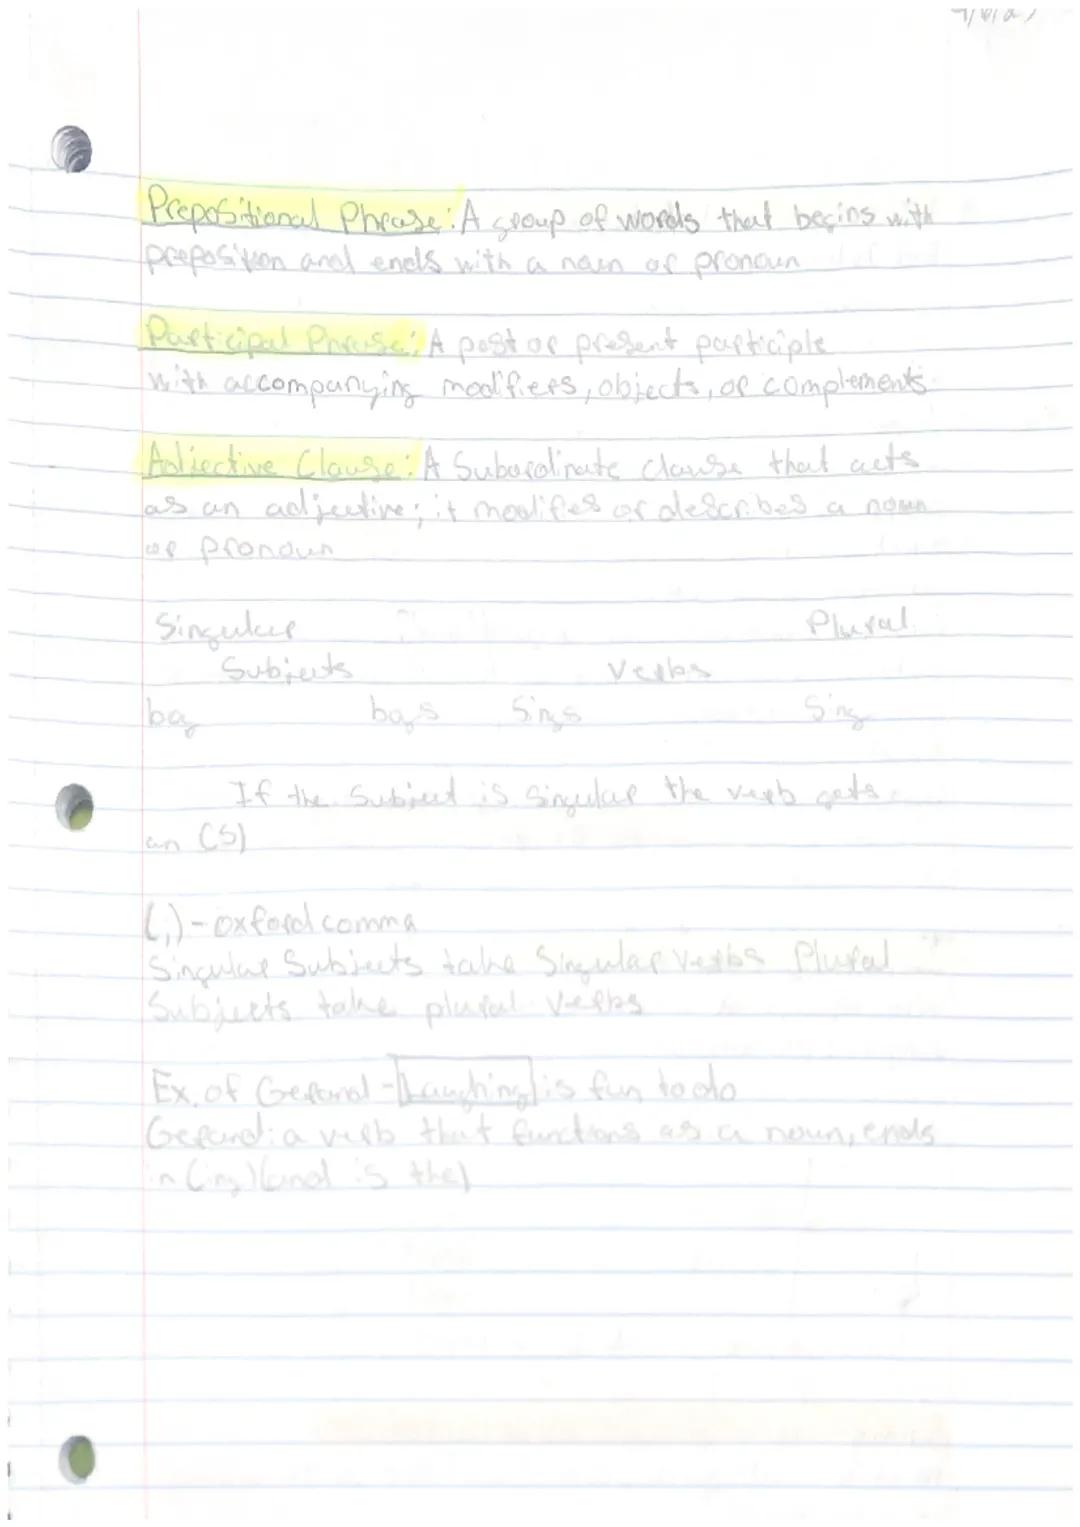 Prepositional Phrase: A group of words that begins with
preposition and ends with a noun or pronoun
Participal Phrase: A past or present participle
with accompanying modifiers, objects, or complements
Adjective Clause: A Subordinate clause that acts
as an adjective; it modifies or describes a noun
or pronoun
Singular Plural
Subjects Verbs
bag bags Sings Sing
If the Subject is Singular the verb gets
an (S)
(,) - oxford comma
Singular Subjects take Singular verbs Plural
Subjects take plural verbs
Ex. of Gerand - Laughing is fun to do
Gerund: a verb that functions as a noun, ends
in (ing) (and is the)